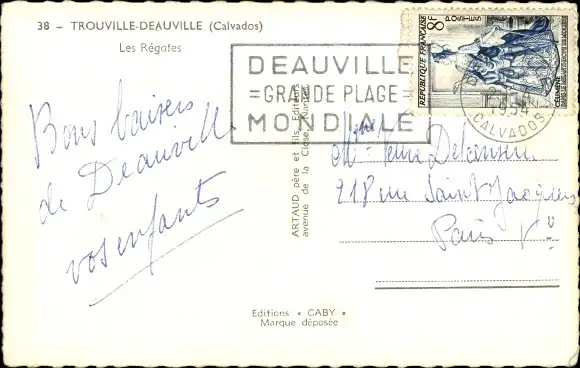 38 - TROUVILLE-DEAUVILLE (Calvados)
Les Régates
DEAUVILLE
=GRANDE PLAGE
MONDIALE
8F
POSTES
REPUBLIQUE FRANÇAISE
1954
CALVADOS
Bons baisers
de Deauville
vos enfants
ARTAUD père et fils, Editeurs
avenue de la Close, Nantes
218 rue Saint Jacques
Paris Ve
Editions « GABY »
Marque déposée